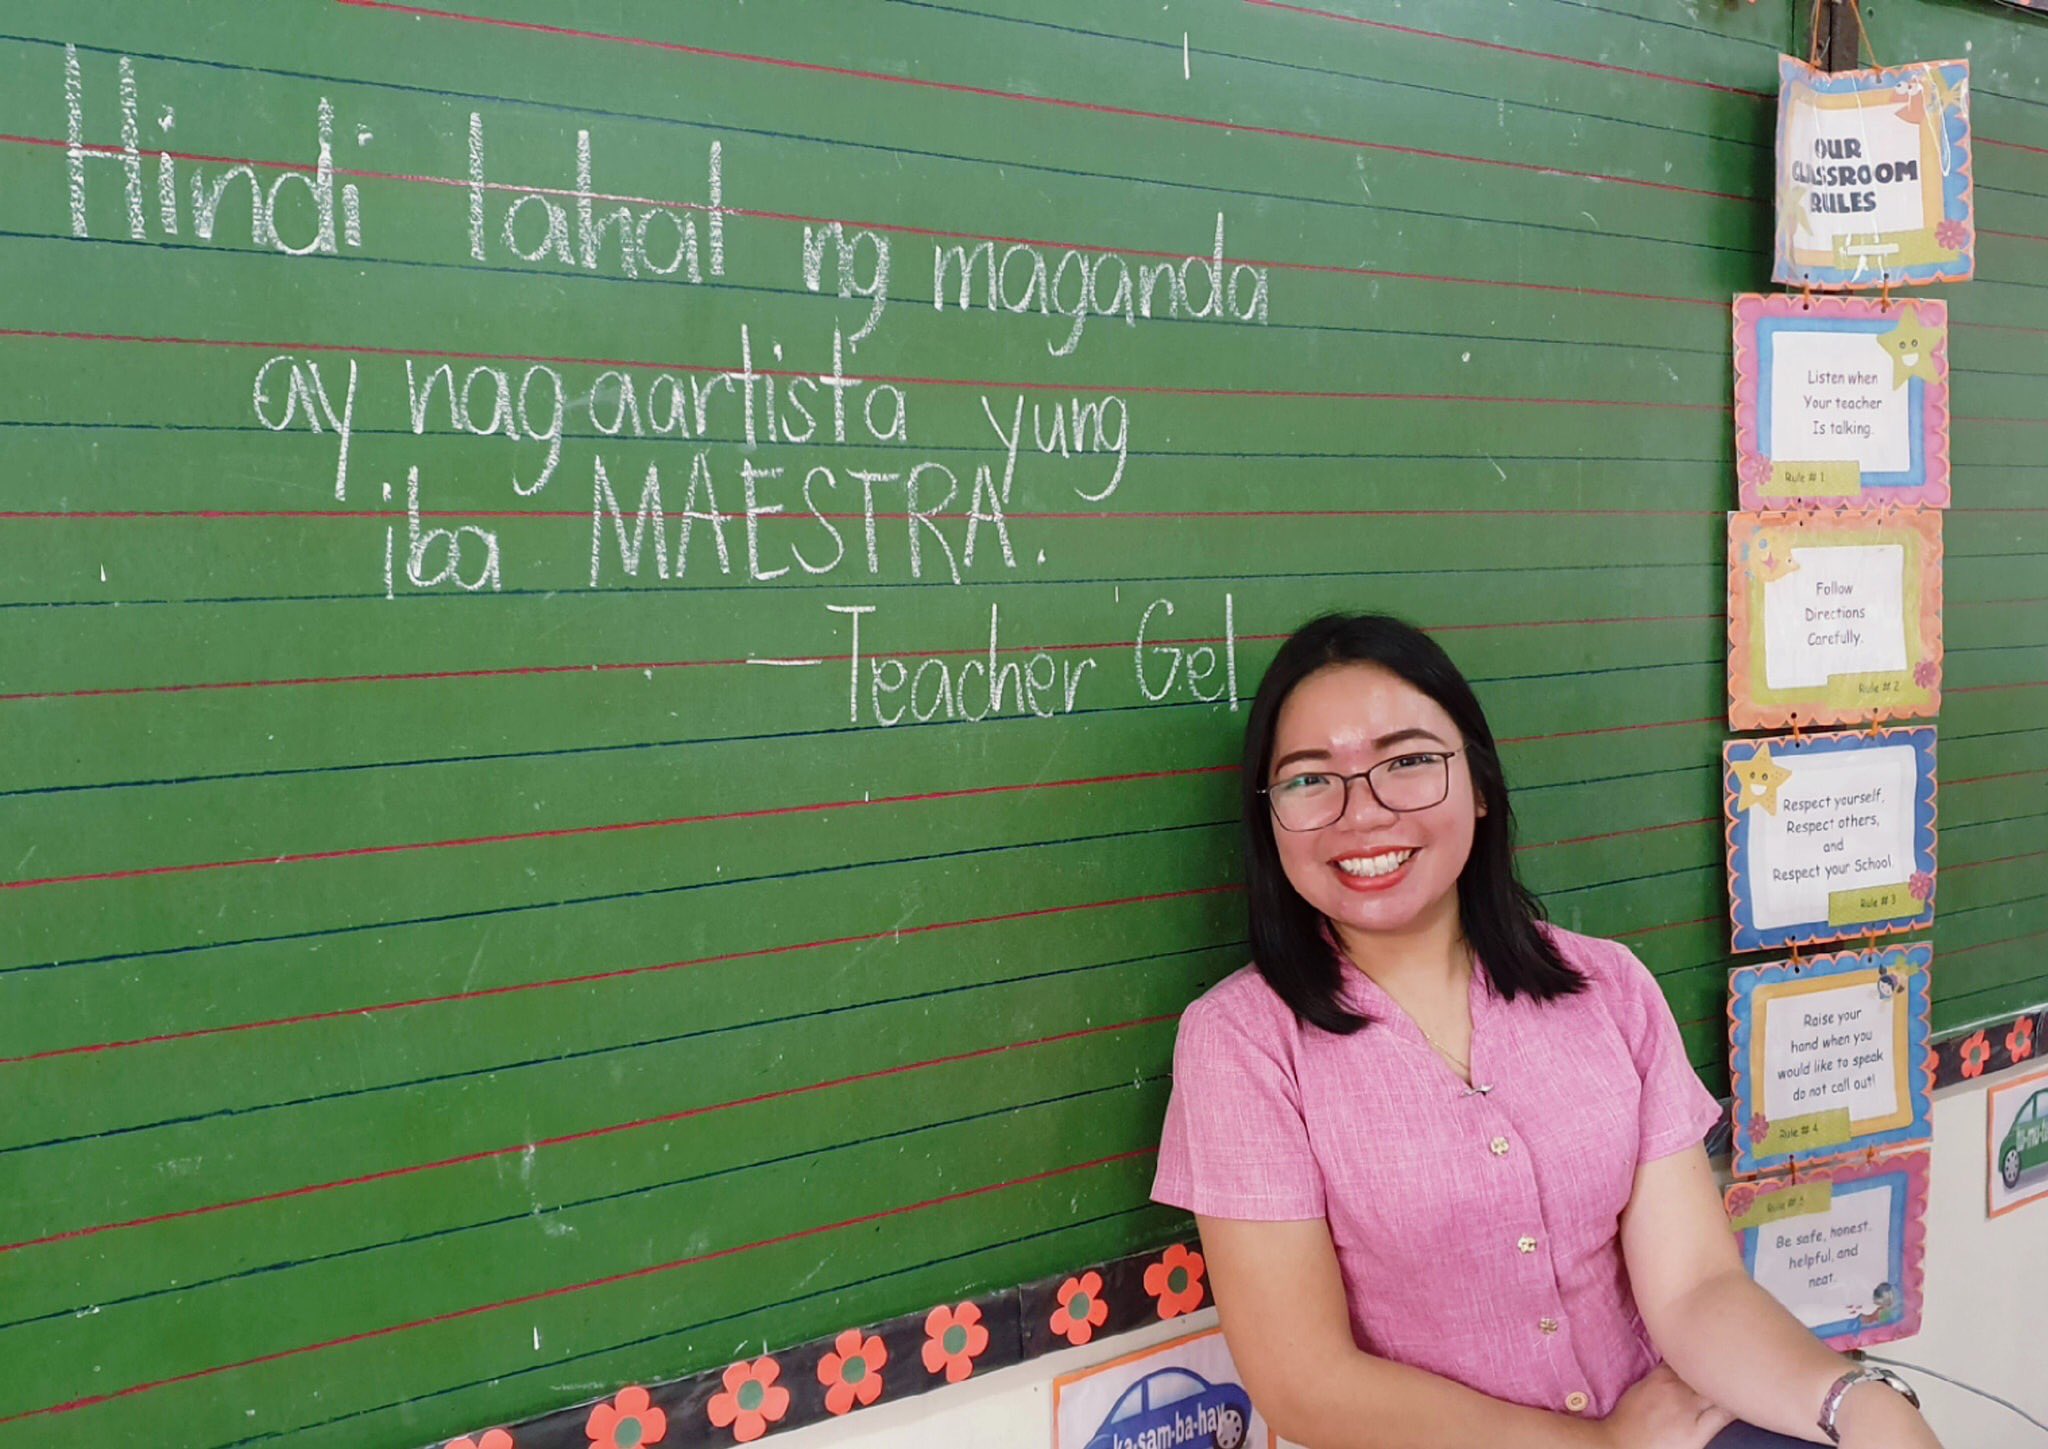 Hindi lahat ng maganda
ay nagaartista yung
iba MAESTRA.
—Teacher Gel
OUR
CLASSROOM
RULES
Listen when
Your teacher
Is talking.
Rule # 1
Follow
Directions
Carefully.
Rule # 2
Respect yourself,
Respect others,
and
Respect your School.
Rule # 3
Raise your
hand when you
would like to speak
do not call out!
Rule # 4
Rule # 5
Be safe, honest,
helpful, and
neat.
ka-sam-ba-hay